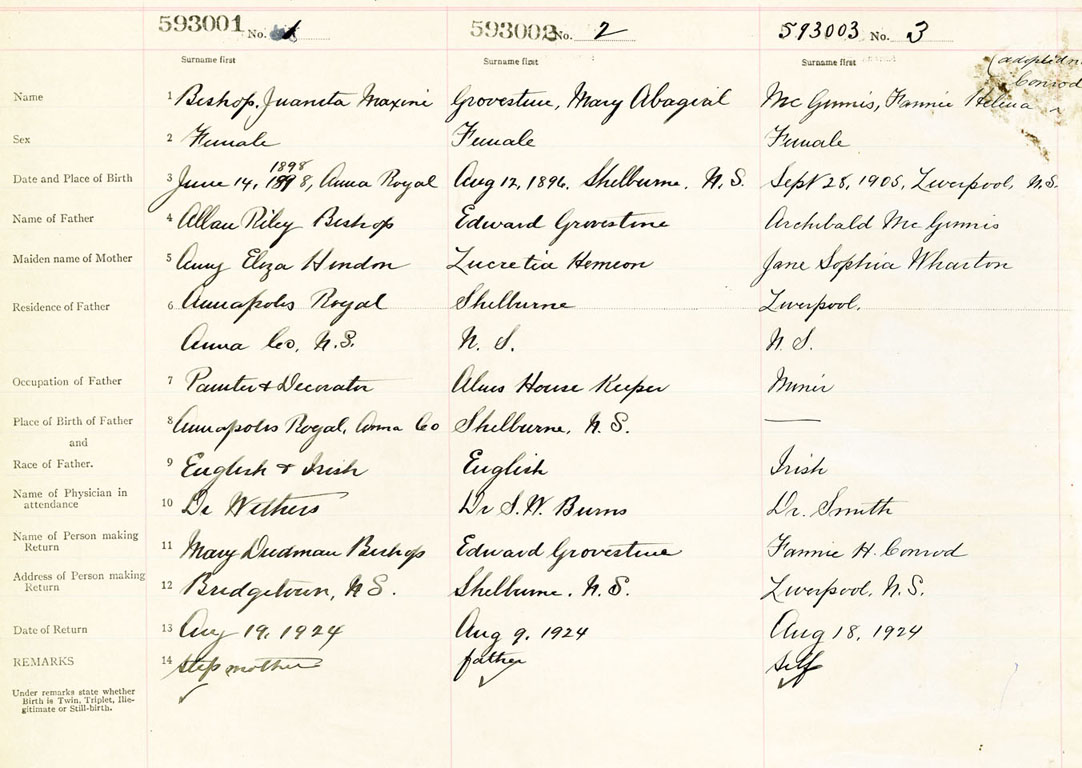 593001 No. 1 593002 No. 2 593003 No. 3
Surname first Surname first Surname first (adopted
Conrod
Name 1 Bishop, Juaneta Maxine Grovestine, Mary Abagiral Mc Ginnis, Fannie Helena
Sex 2 Female Female Female
1898
Date and Place of Birth 3 June 14, 1898, Anna Royal Aug 12, 1896, Shelburne, N.S. Sept 28, 1905, Liverpool, N.S.
Name of Father 4 Allan Riley Bishop Edward Grovestine Archibald Mc Ginnis
Maiden name of Mother 5 Amy Eliza Hindon Lucretia Hemeon Jane Sophia Wharton
Residence of Father 6 Annapolis Royal Shelburne Liverpool,
Anna Co, N.S. N. S. N. S.
Occupation of Father 7 Painter & Decorator Alms House Keeper Miner
Place of Birth of Father 8 Annapolis Royal, Anna Co Shelburne, N. S. —
and
Race of Father. 9 English & Irish English Irish
Name of Physician in
attendance 10 De Withers Dr S. W. Burns Dr. Smith
Name of Person making
Return 11 Mary Dudman Bishop Edward Grovestine Fannie H. Conrod
Address of Person making
Return 12 Bridgetown, N S. Shelburne. N. S. Liverpool, N. S.
Date of Return 13 Aug 19, 1924 Aug 9, 1924 Aug 18, 1924
REMARKS 14 step mother father self
Under remarks state whether
Birth is Twin, Triplet, Ille-
gitimate or Still-birth.